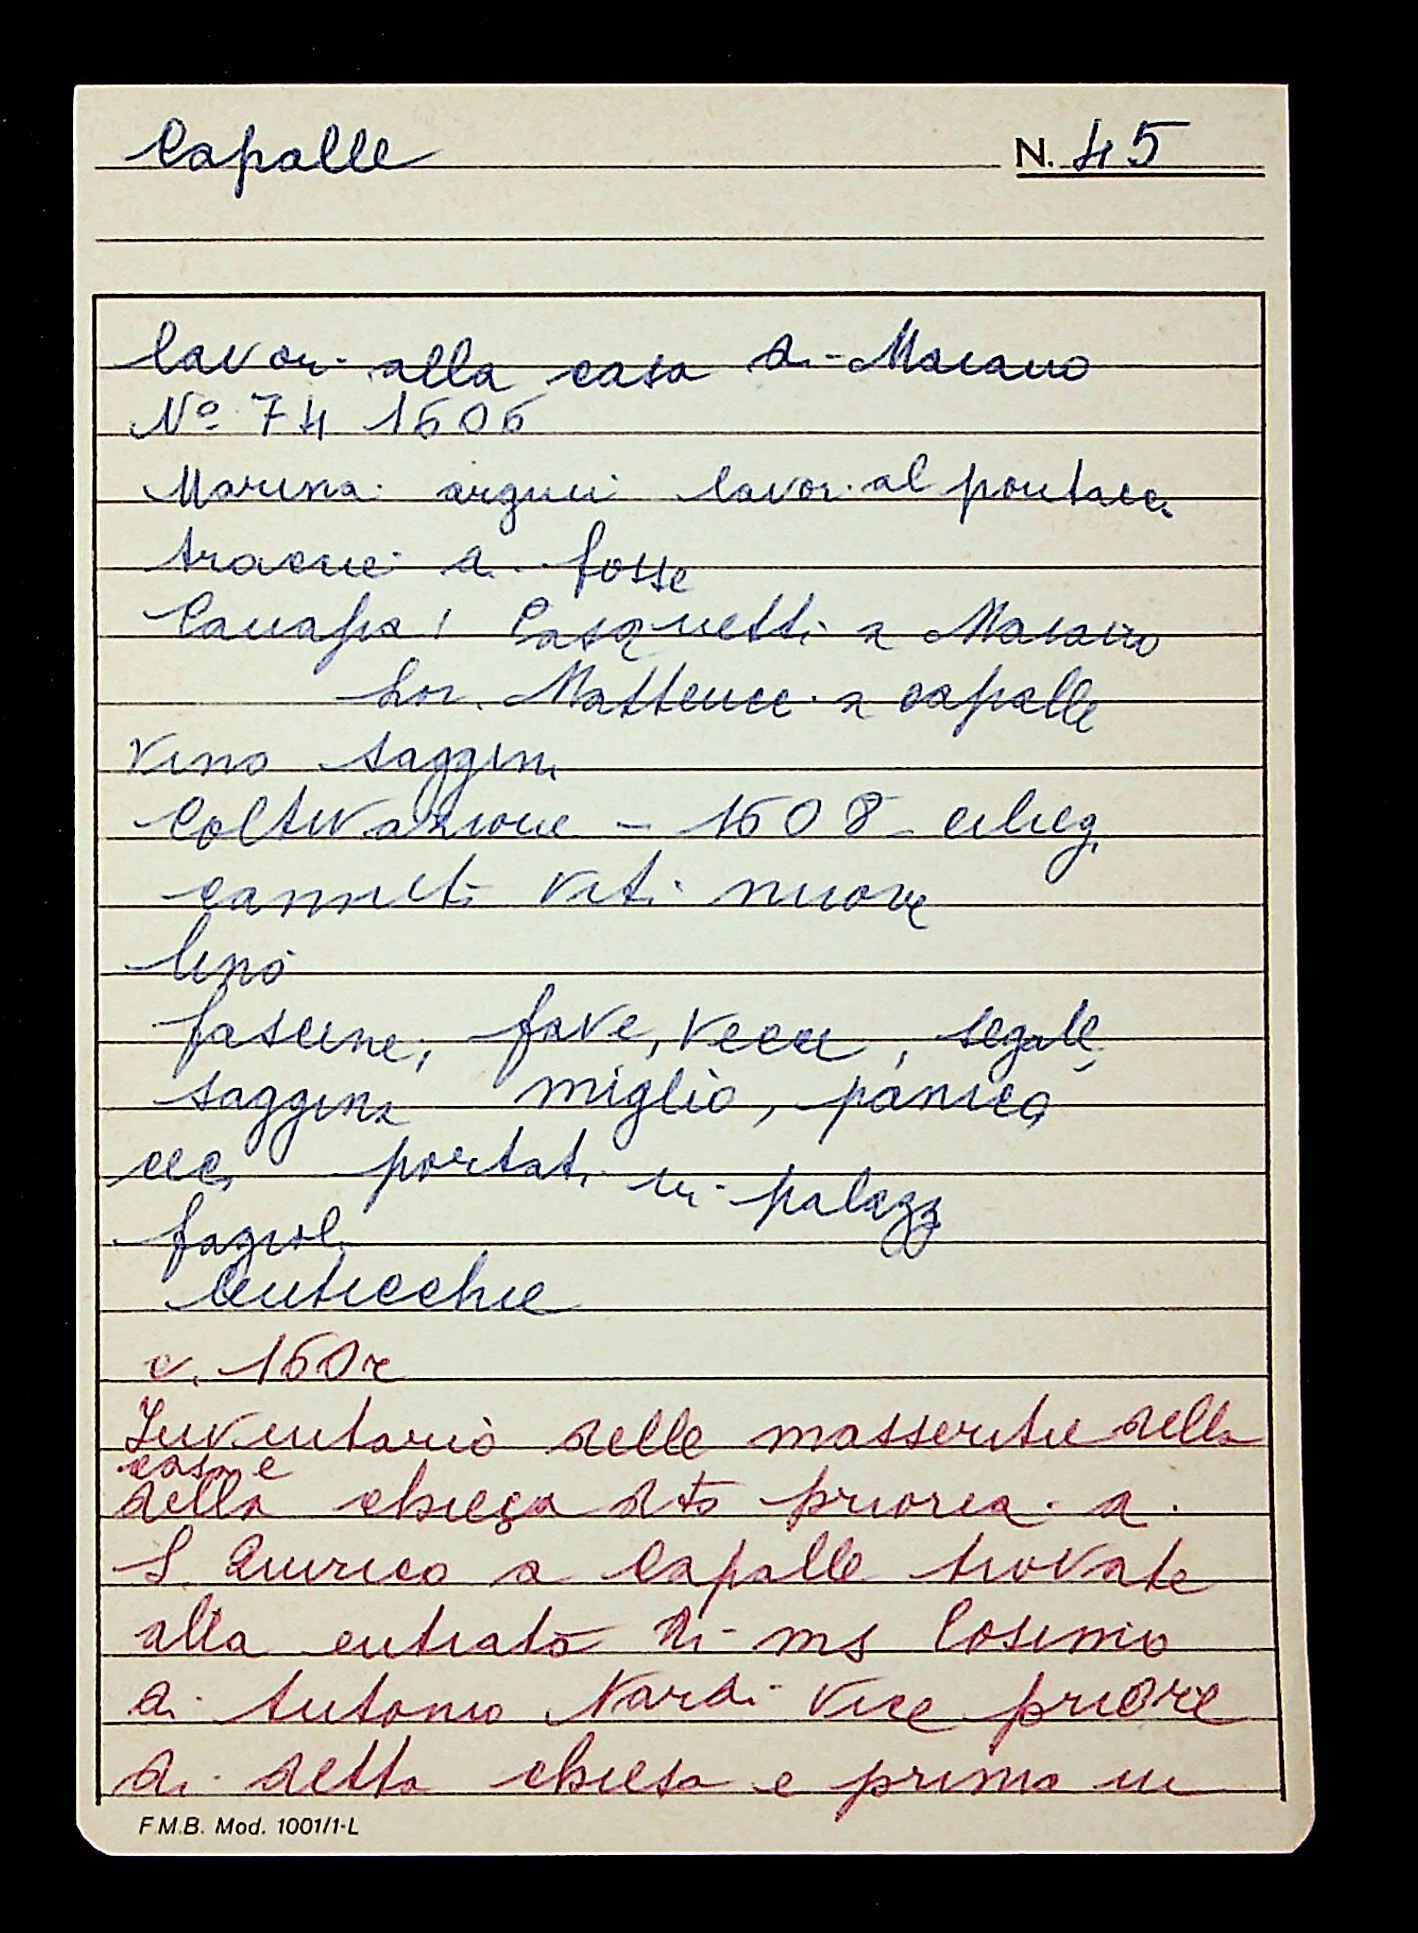 Capalle N. 45
lavori alla casa di Macano
Nº 74 1606
Marina argini lavori al pontacci
tracne di fosse
Canapa! Pasquetti a Macano
Lor. Matteucci a capalle
vino saggin
Coltivazione - 1608 cilieg.
canneti viti nuove
lino
fascine, fave, vecce, segale,
saggina miglio, panico,
ecc. portati in palazz
fagioli
lenticchie
c. 160r
Inventario delle masseritie della
casa e
della chiesa dto prioria di
S. Quirico a Capalle trovate
alla entrata di ms Cosimo
di Antonio Nardi vice priore
di detta chiesa e prima in
F.M.B. Mod. 1001/1-L